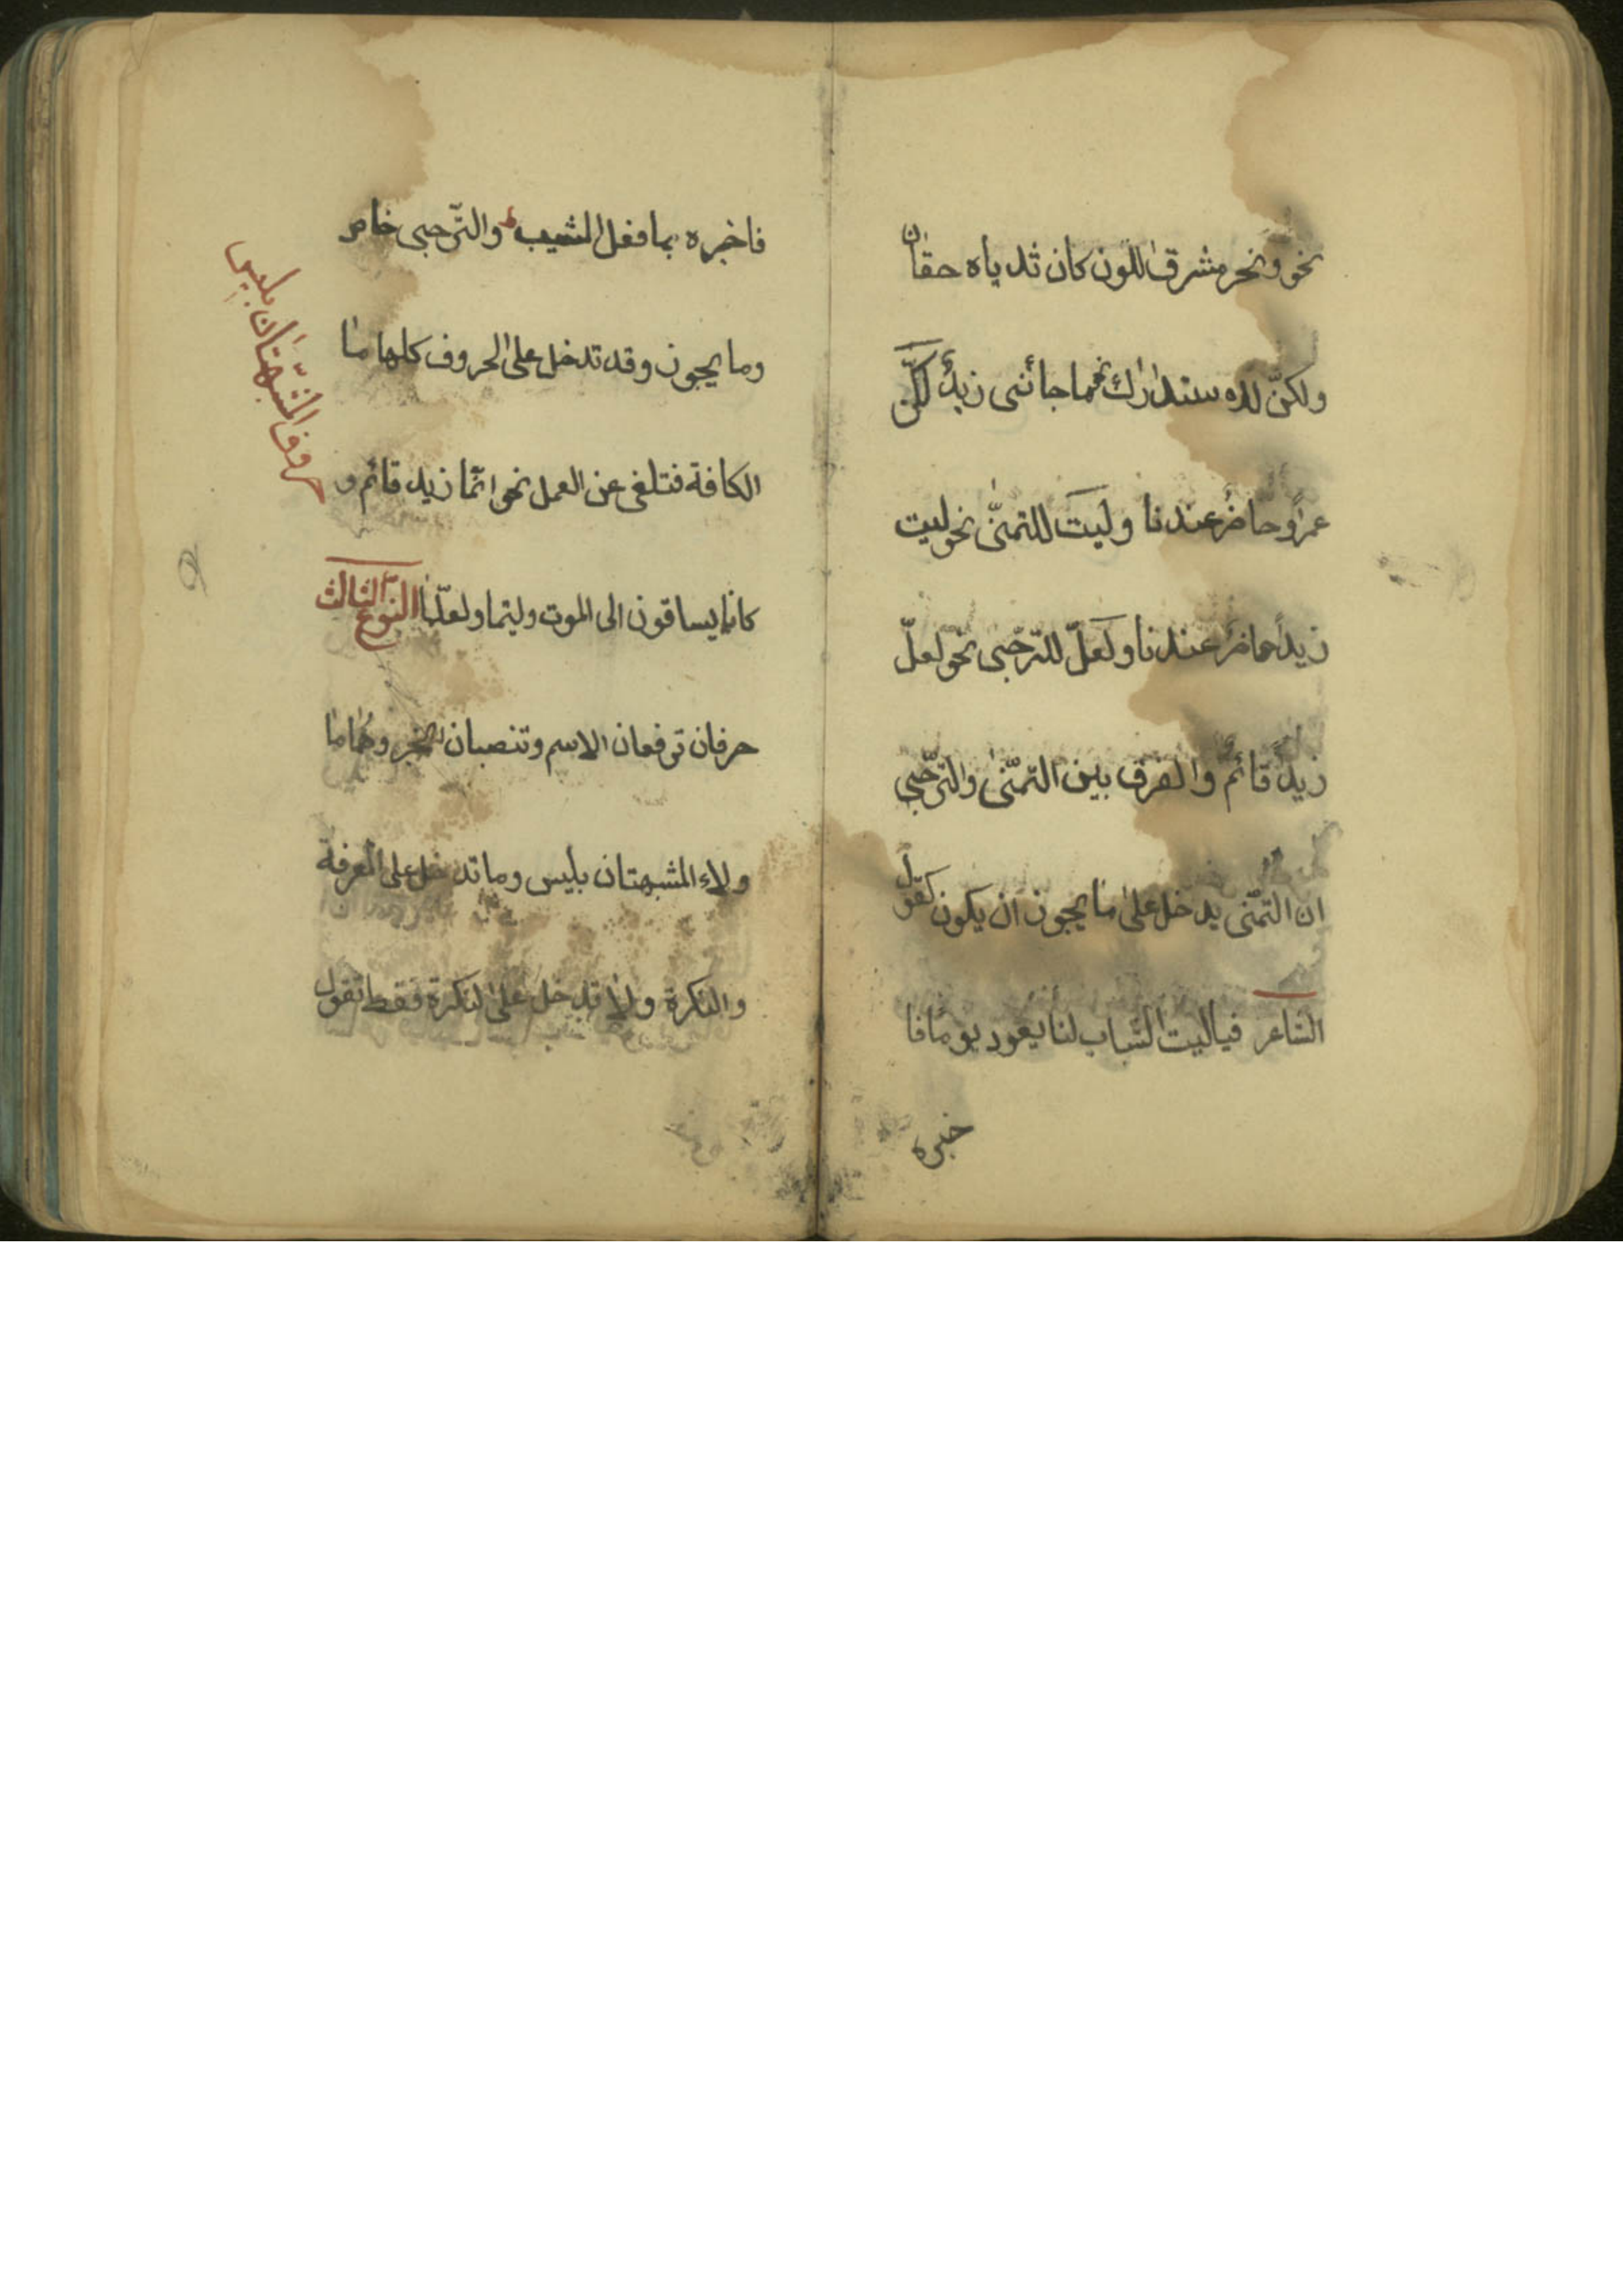 نحو ونحر مشرق اللون كان ثدياه حقان
ولكنّ للاستدراك نحو ما جائنى زيدٌ لكنّ
عمروًا حاضرٌ عندنا وليتَ للتمنّى نحو ليت
زيدًا حاضرٌ عندنا ولَعَلّ للتّرجّى نحو لعلّ
زيدًا قائمٌ والفرق بين التمّنى والترّجى
ان التمّنى يدخل على ما يجوز ان يكون كقول
الشاعر فياليت الشباب لنا يعود يومًا فا
خبره
فاخبره بما فعل المشيب والترّجى خاص
وما يجوز وقد تدخل على الحروف كلها ما
الكافة فتلغى عن العمل نحو انّما زيد قائم و
كانما يساقون الى الموت وليتما ولعلّما النوع الثالث
حرفان ترفعان الاسم وتنصبان الخبر وهُما ما
ولاء المشبهتان بليس وما تدخل على المعرفة
والنكرة ولا تدخل على النكرة فقط تقول
حروف المشبّهتان بليس